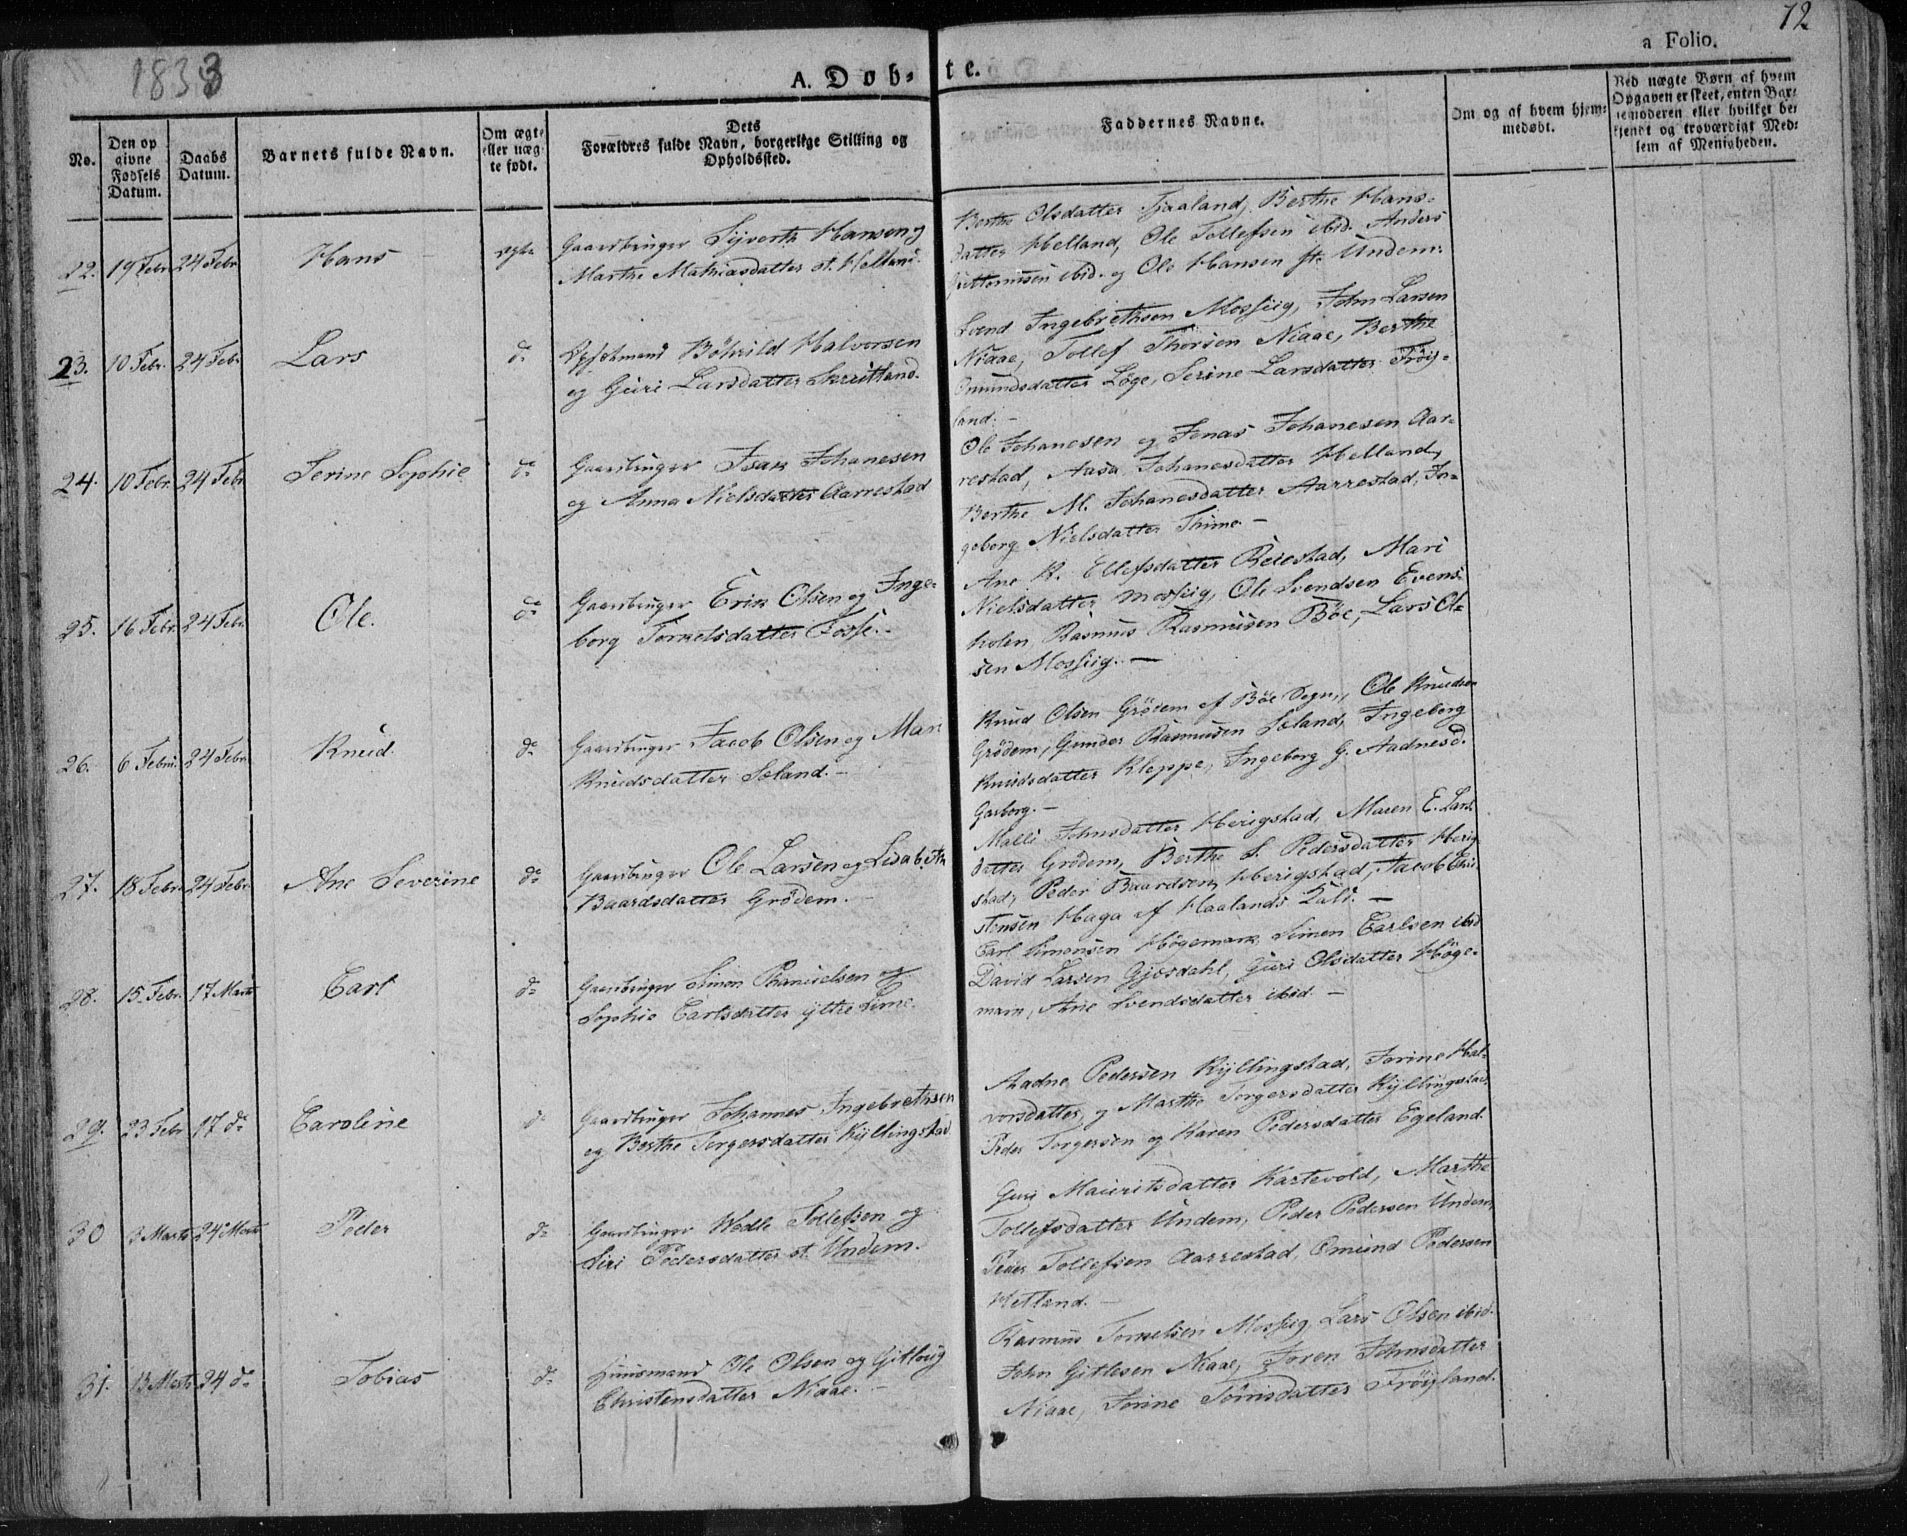 1833
A. Døb-
te.
a Folio.
12
No.
Den op
givne
Fødsels
Datum.
Daabs
Datum.
Barnets fulde Navn.
Om ægte
eller uæg-
te født.
Dets
Forældres fulde Navn, borgerlige Stilling og
Opholdssted.
Faddernes Navne.
Om og af hvem hjem-
medøbt.
Ved uægte Børn af hvem
Opgaven er skeet, enten Bar-
nemoderen eller hvilket be-
kjendt og troværdigt Med-
lem af Menigheden.
22. 19 Febr. 24 Febr. Hans ægte
Gaardbruger Syvert Hansen og
Marthe Mathiasdatter st. Helland.
Berthe Olsdatter Fjaaland, Berthe Hans-
datter Helland, Ole Tollefsen ibid. Anders
Guttormsen ibid. og Ole Hansen st. Undem.
23. 10 Febr. 24 Febr. Lars do
Opsidmand Halvorsen
og Guri Larsdatter
Svend Ingebrethsen Mossiig, John Larsen
Niaae, Tollef Thorsen Niaae, Berthe
Omundsdatter Løge, Serine Larsdatter Frøy-
land. -
24. 10 Febr. 24 Febr. Serine Sophie do
Gaardbruger Isak Johanesen
og Anna Nielsdatter Aarrestad
Ole Johanesen og Jonas Johanesen Aar-
restad, Aasa Johanesdatter Helland,
Berthe M. Johanesdatter Aarrestad, In-
geborg Nielsdatter Thime. -
25. 16 Febr. 24 Febr. Ole. do
Gaardbruger Erik Olsen og Inge-
borg Torkelsdatter Fosse. -
Ane K. Ellefsdatter Reiestad, Mari
Nielsdatter Mossiig, Ole Svendsen Evens-
holen Rasmus Rasmusen Bøe, Lars Ol-
sen Mossiig. -
26. 6 Febr. 24 Febr. Knud. do
Gaardbruger Jacob Olsen og Mari
Knudsdatter Søland. -
Knud Olsen Grødem af Bøe Sogn, Ole Knudsen
Grødem, Gunder Rasmusen Søland, Ingeborg
Knudsdatter Kleppe, Ingeborg G. Aadnesd.
Garborg. -
27. 18 Febr. 24 Febr. Ane Severine do
Gaardbruger Ole Larsen og Lisabeth
Baardsdatter Grødem. -
Malli Johnsdatter Herigstad, Maren E. Lars-
datter Grødem, Berthe S. Pedersdatter Herig-
stad, Peder Baardsen Herigstad, Jacob Chri-
stensen Haga af Haalands -
28. 15. Febr. 17 Marts Carl do
Gaardbruger Simon Thanielsen og
Sophie Carlsdatter ytre Lime.
Carl Simonsen Høgemark Simon Carlsen ibid
David Larsen Gjesdahl, Guri Olsdatter Høge-
mark, Ane Svendsdatter ibid. -
29. 23 Febr 17 do Caroline do
Gaardbruger Johannes Ingebrethsen
og Berthe Torgersdatter Kyllingstad
Aadne Pedersen Kyllingstad, Torine Hal-
vorsdatter og Marthe Torgersdatter Kyllingstad
Peder Torgersen og Karen Pedersdatter Egeland.
30 3 Marts 24 Marts Peder do
Gaardbruger Tollefsen og
Siri Pedersdatter st. Undem.
Guri Mauritsdatter Kartevold, Marthe
Tollefsdatter Undem, Peder Pedersen Undem,
Peder Tollefsen Aarrestad, Omund Pedersen
Hetland. -
31. 13 Marts 24 do Tobias do
Huusmand Ole Olsen og Gitlaug
Christensdatter Niaae. -
Rasmus Torkelsen Mossiig, Lars Olsen ibid.
John Gitlesen Niaae, Soren Johnsdatter
Niaae, Torine Tørresdatter Frøyland.